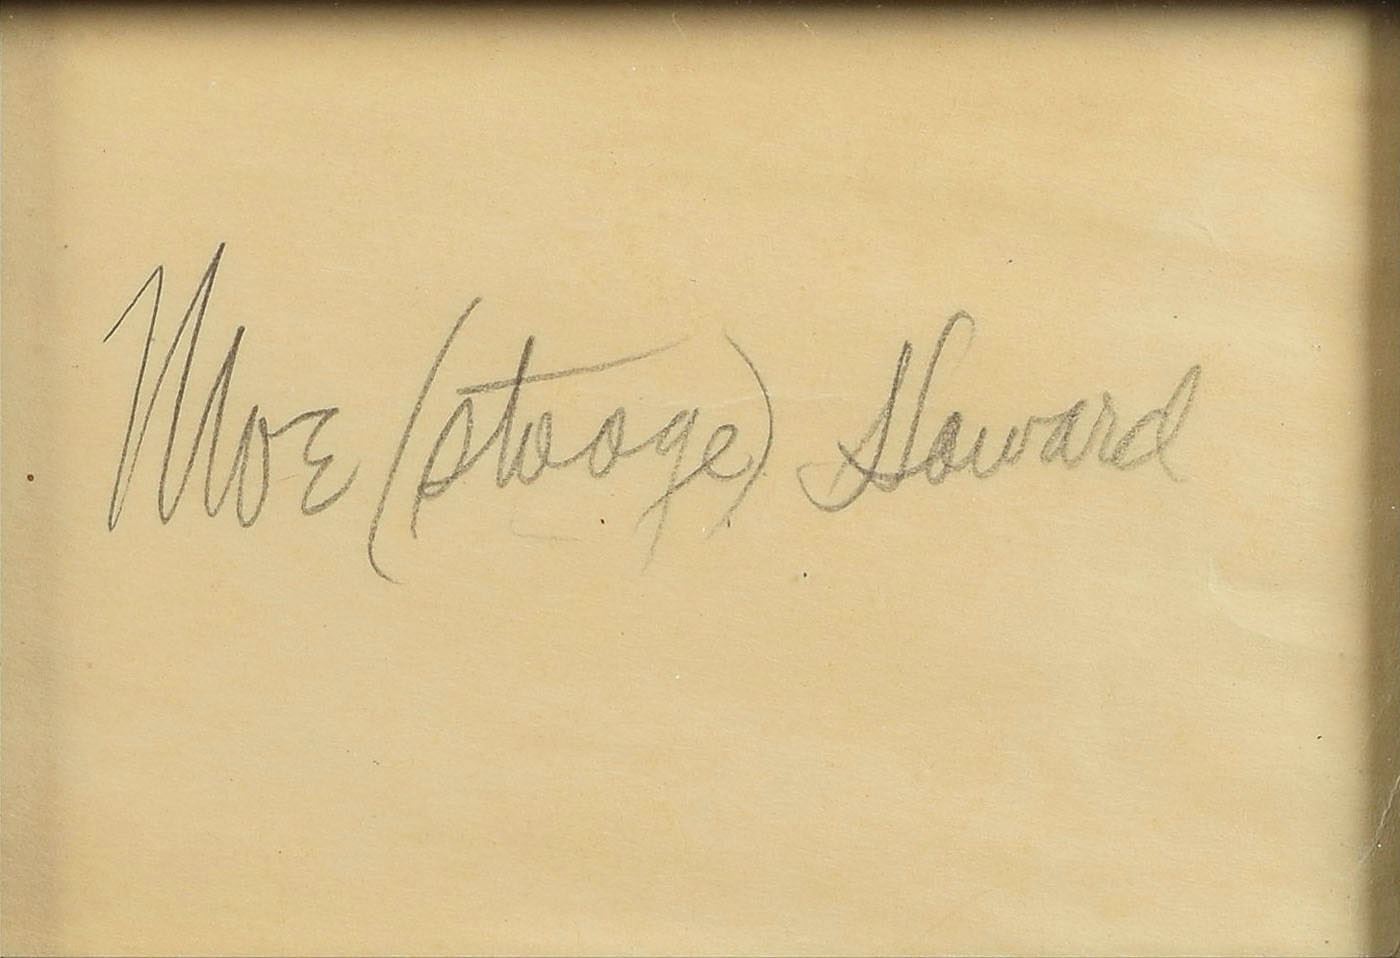 Moe (stooge) Howard